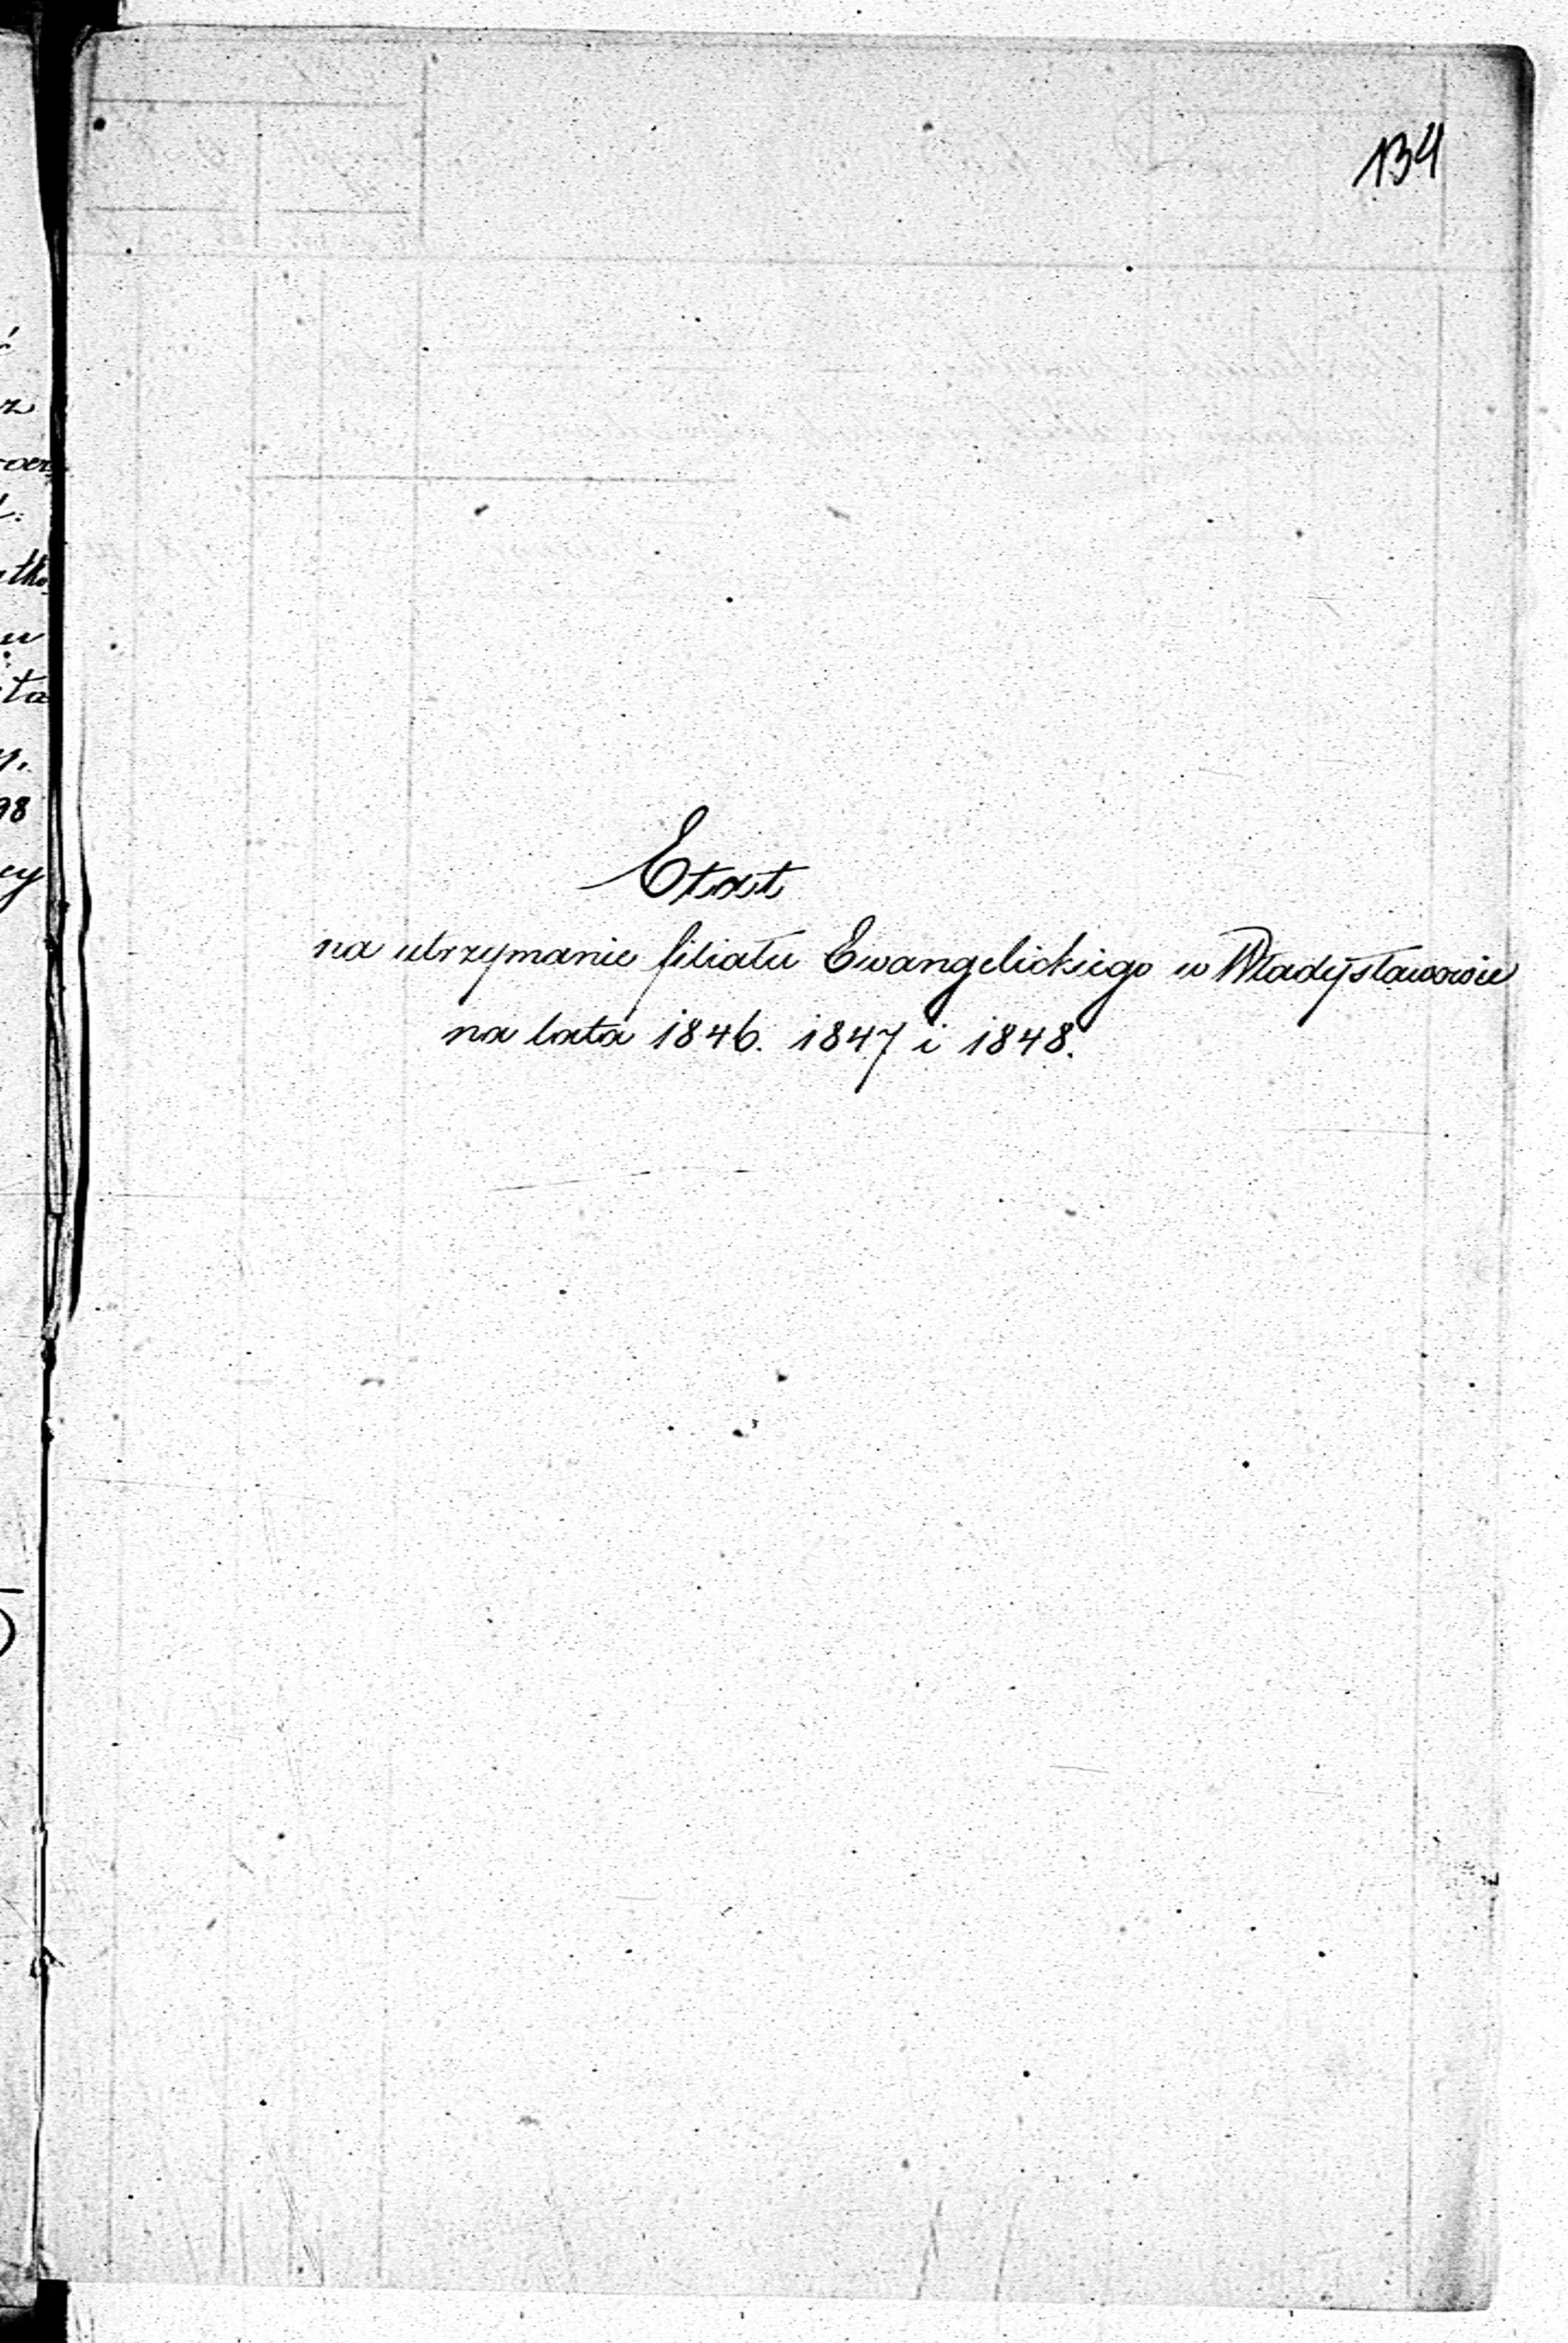 134
Etat
na utrzymanie filiału Ewangelickiego w Władysławowie
na lata 1846. 1847 i 1848.